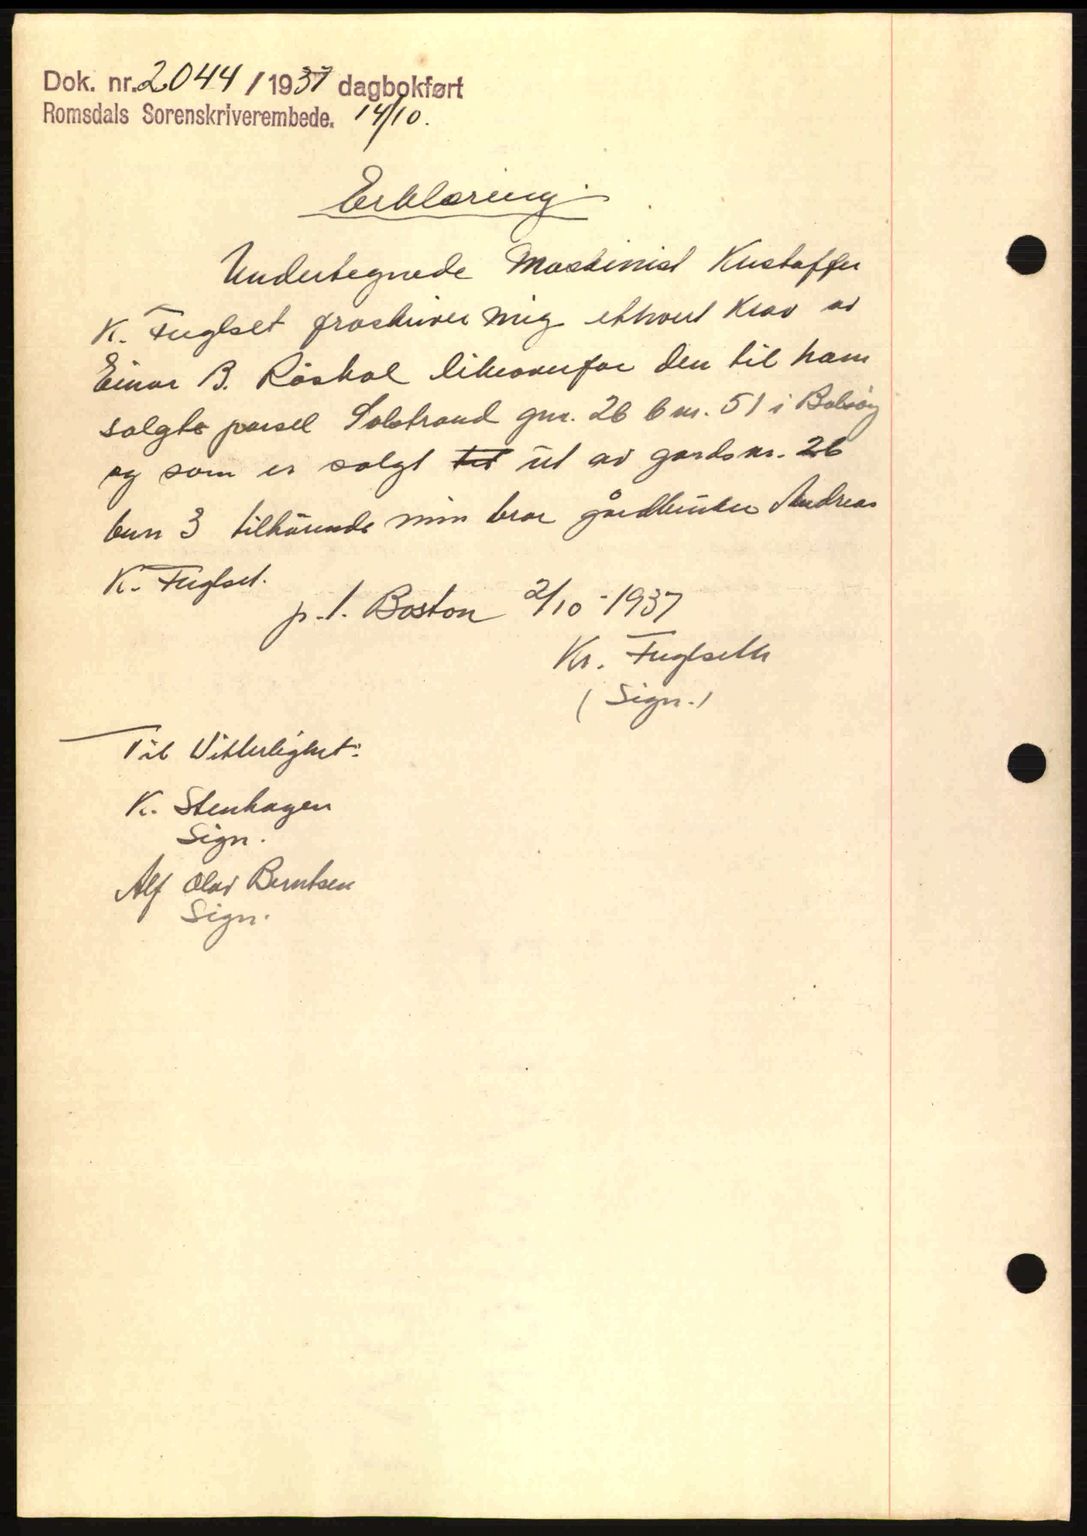 Dok. nr. 2044 / 1937 dagbokført
Romsdals Sorenskriverembede. 14/10.
Erklæring
Undertegnede Maskinist Kristoffer
K. Fuglset fraskriver mig ethvert krav av
Einar B. Röskol likeoverfor den til ham
solgte parsel Solstrand gnr. 26 bnr. 51 i Bolsöy
og som er solgt ut av gardsnr. 26
brn 3 tilhörende min bror gårdbruker Andreas
K. Fuglset.
p. t. Boston 2/10 - 1937
Kr. Fuglseth
(Sign.)
Til Vitterlighet:
K. Stenhagen
Sign.
Alf Olav Berntsen
Sign.